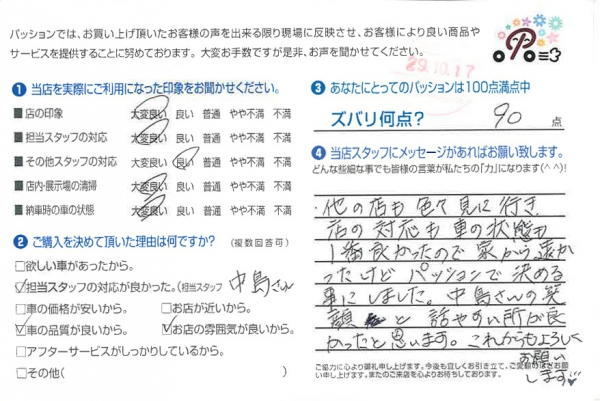 パッションでは、お買い上げ頂いたお客様の声を出来る限り現場に反映させ、お客様により良い商品や
サービスを提供することに努めております。大変お手数ですが是非、お声を聞かせてください。
29.10.17
❶ 当店を実際にご利用になった印象をお聞かせください。
■ 店の印象 大変良い 良い 普通 やや不満 不満
■ 担当スタッフの対応 大変良い 良い 普通 やや不満 不満
■ その他スタッフの対応 大変良い 良い 普通 やや不満 不満
■ 店内・展示場の清掃 大変良い 良い 普通 やや不満 不満
■ 納車時の車の状態 大変良い 良い 普通 やや不満 不満
❷ ご購入を決めて頂いた理由は何ですか？（複数回答可）
□欲しい車があったから。
☑担当スタッフの対応が良かった。(担当スタッフ 中島さん
□車の価格が安いから。 □お店が近いから。
☑車の品質が良いから。 ☑お店の雰囲気が良いから。
□アフターサービスがしっかりしているから。
□その他(
❸ あなたにとってのパッションは100点満点中
ズバリ何点？ 90 点
❹ 当店スタッフにメッセージがあればお願い致します。
どんな些細な事でも皆様の言葉が私たちの「力」になります(^^)!
・他の店も色々見に行き、
店の対応も車の状態も
1番良かったので家から遠か
ったけどパッションで決める
事にしました。中島さんの笑
顔と話やすい所が良
かったと思います。これからもよろしく
お願い
します
ご協力に心より御礼申し上げます。今後も宜しくお引き立て、ご愛顧のほどお願
い申し上げます。またのご来店を心よりお待ちしております。